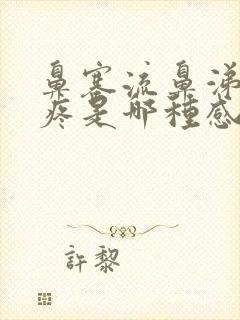 鼻塞流鼻涕
疼是哪種感
許黎